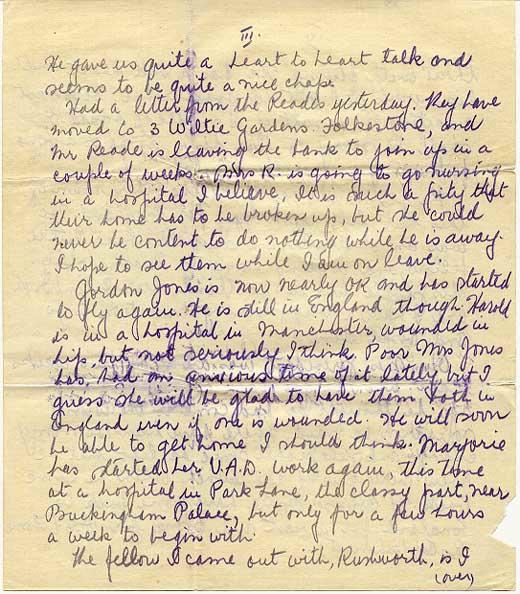 III.
He gave us quite a heart to heart talk and
seems to be quite a nice chap.
Had a letter from the Reades yesterday. They have
moved to 3 Wiltie Gardens Folkestone, and
Mr Reade is leaving the bank to join up in a
couple of weeks. Mrs R. is going to go nursing
in a hospital I believe, It is such a pity that
their home has to be broken up, but she could
never be content to do nothing while he is away.
I hope to see them while I am on leave.
Gordon Jones is now nearly OK and has started
to fly again. He is still in England though. Harold
is in a hospital in Manchester wounded in
hip, but not seriously I think. Poor Mrs Jones
has, had an anxious time of it lately but I
guess she will be glad to have them both in
England even if one is wounded. He will soon
be able to get home I should think. Marjorie
has started her V.A.D. work again, this time
at a hospital in Park Lane, the classy part, near
Buckingham Palace, but only for a few hours
a week to begin with.
The fellow I came out with, Rushworth, is I
(over)